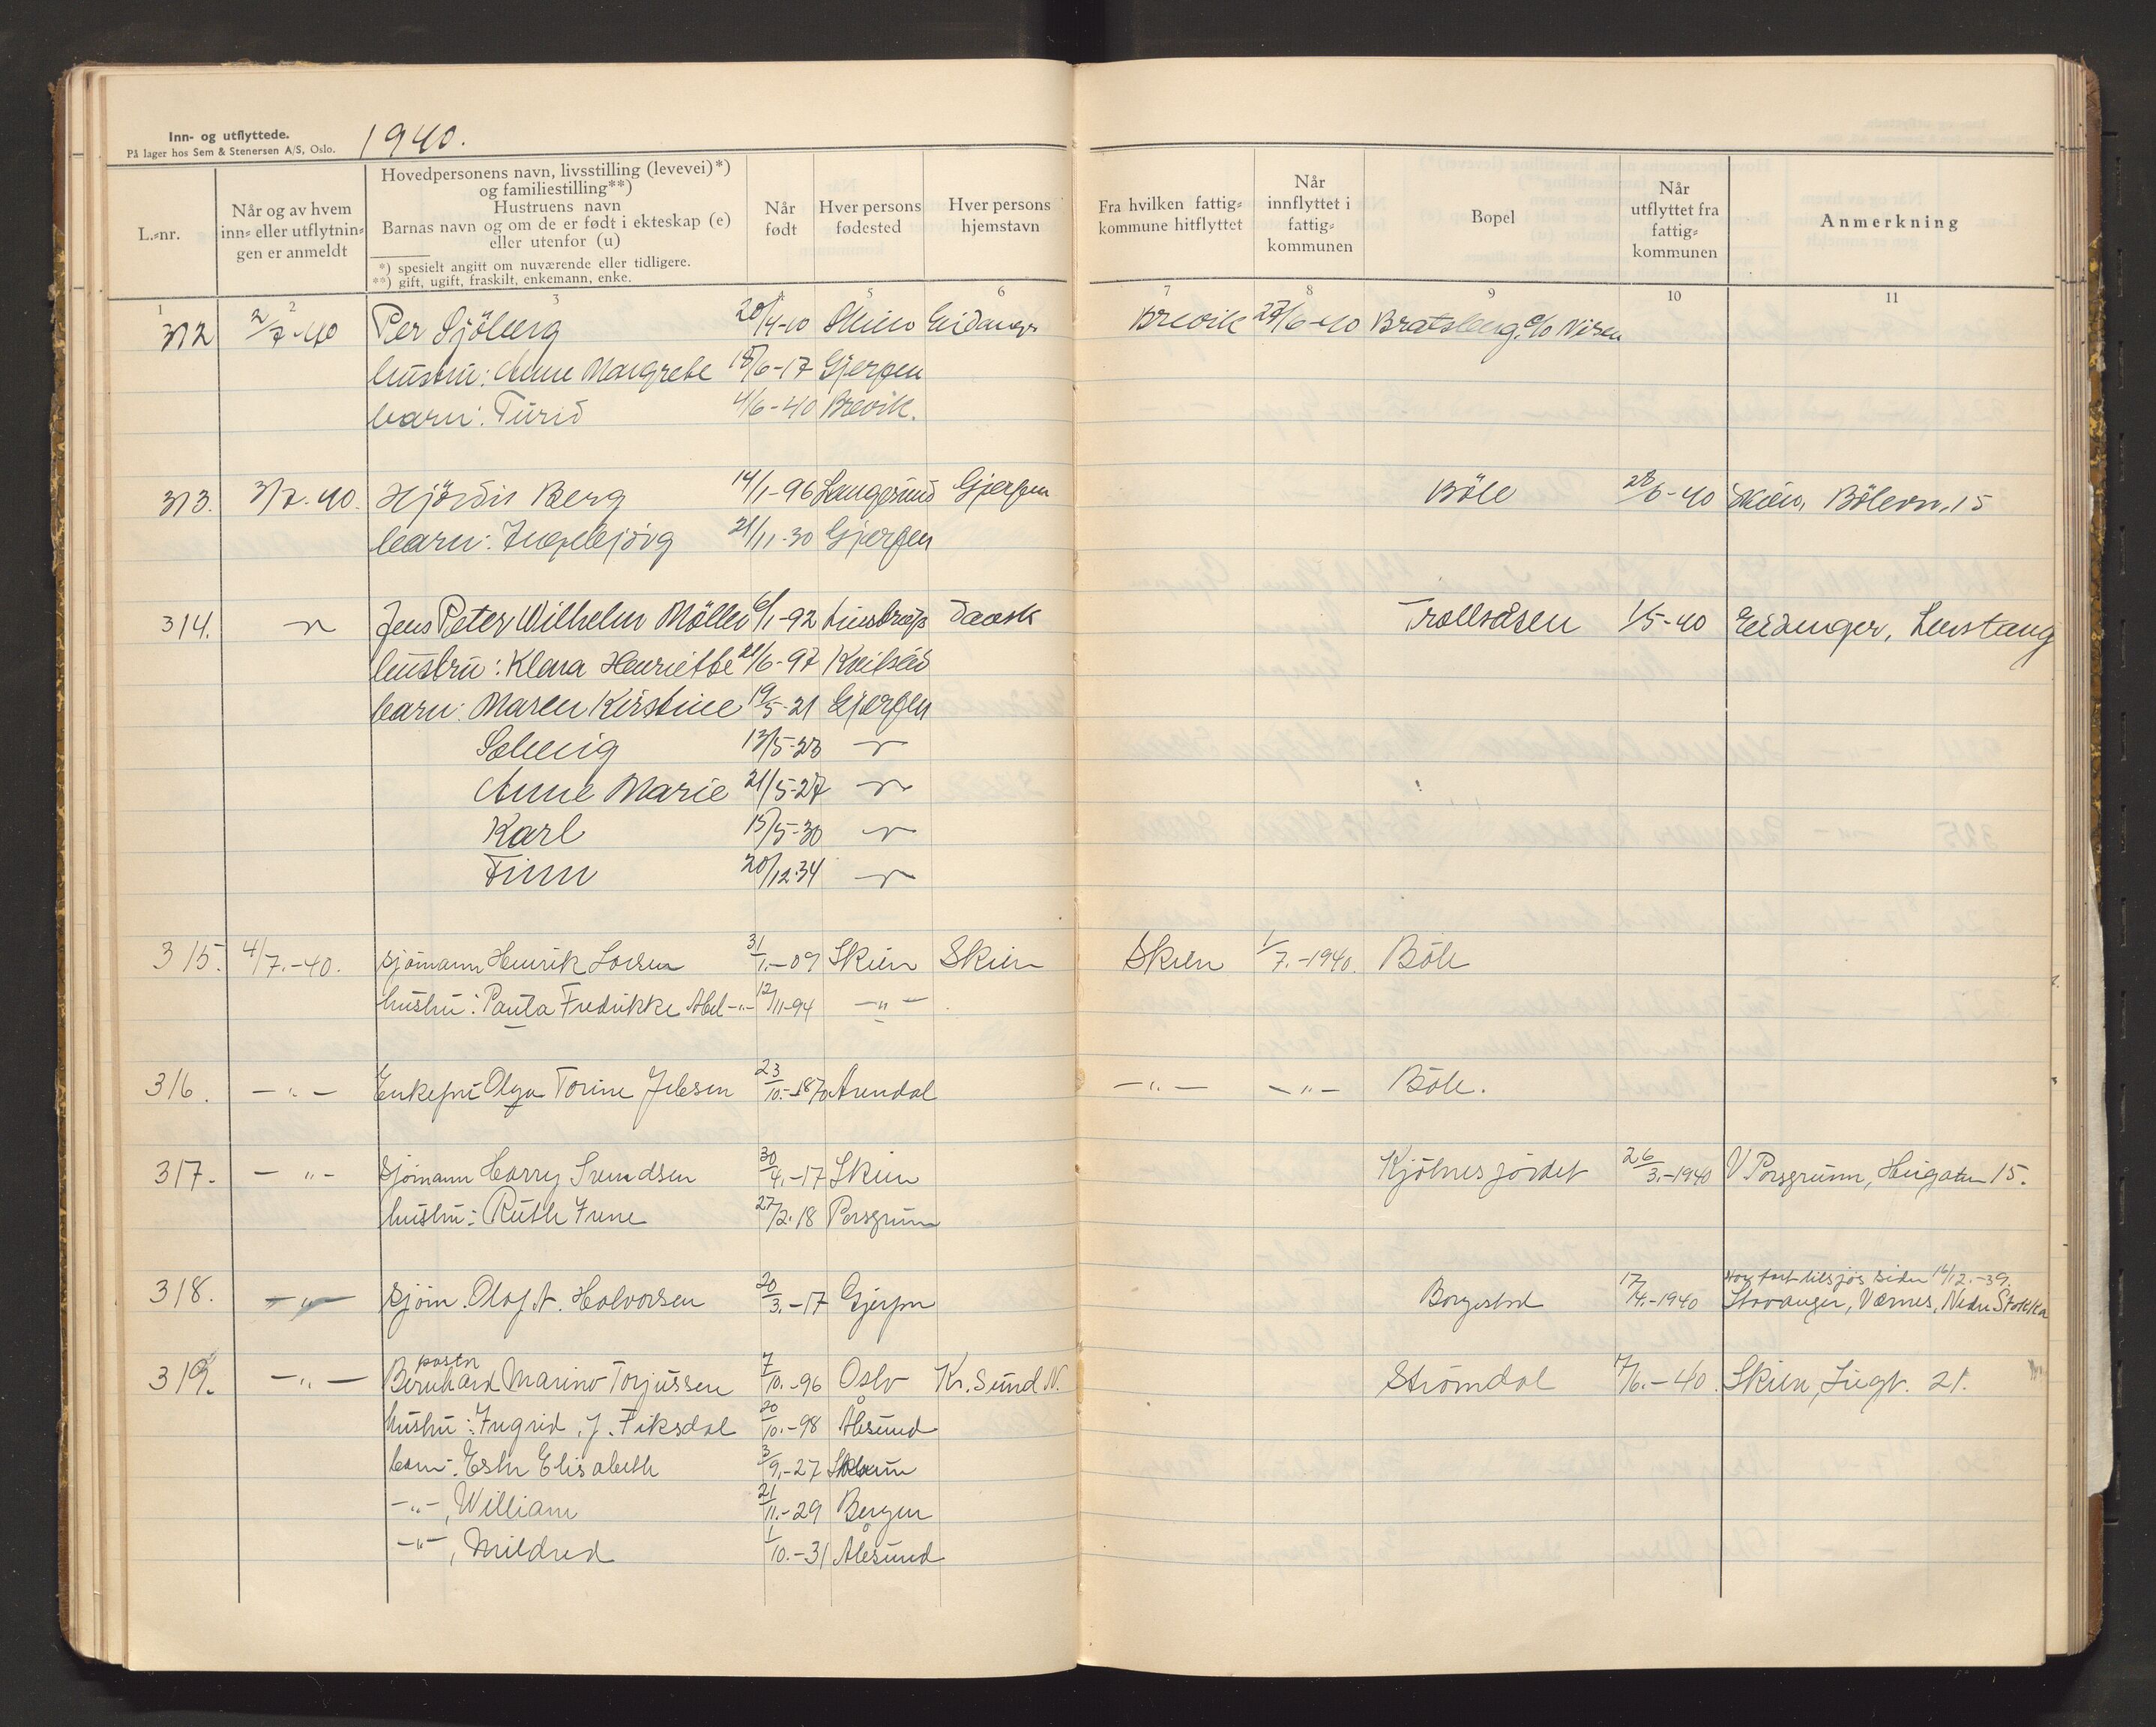 Inn- og utflyttede.
På lager hos Sem & Stenersen A/S, Oslo.
1940.
L.-nr.
Når og av hvem inn- eller utflytningen er anmeldt
Hovedpersonens navn, livsstilling (levevei)*)
og familiestilling**)
Hustruens navn
Barnas navn og om de er født i ekteskap (e)
eller utenfor (u)
*) spesielt angitt om nuværende eller tidligere.
**) gift, ugift, fraskilt, enkemann, enke.
Når født
Hver persons fødested
Hver persons hjemstavn
Fra hvilken fattigkommune hitflyttet
Når innflyttet i fattigkommunen
Bopel
Når utflyttet fra fattigkommunen
Anmerkning
1 2 3 4 5 6 7 8 9 10 11
312 2/7-40 Per Sjöberg 20/4-10 Skien Eidanger Brevik 27/6-40 Bratsberg, c/o Nisen
hustru: Anne Margrete 18/6-17 Gjerpen
barn: Turid 4/6-40 Brevik.
313. 3/7.40. Hjördis Berg 14/1-96 Langesund Gjerpen Böle 28/6-40 Skien, Bölevn. 15
barn: Ingebjörg 21/11-30 Gjerpen
314. Jens Peter Wilhelm Möller 6/1-92 Dansk Trollsåsen 1/5-40 Eidanger,
hustru: Klara Henriette 21/6-97
barn: Maren Kirstine 19/5-21 Gjerpen
Solveig 13/5-23
Anne Marie 21/5-27
Karl 15/5-30
Finn 20/12-34
315. 4/7.-40. sjömann Henrik Larsen 31/1.-09 Skien Skien Skien 1/7.-1940. Böle
hustru: Paula Fredrikke Abel -"- 12/11-94 -"-
316. -"- Enkefru Olga Torine Jelesen 23/10.-1870 Arendal -"- -"- Böle.
317. -"- sjömann Harry Svendsen 30/4.-17 Skien Kjölnesjordet 26/3.-1940 V. Porsgrunn, Heigaten 15.
hustru: Ruth Irene 27/2.18 Porsgrunn
318. -"- sjöm. Olaf A. Halvorsen 20/3.-17 Gjerpen Borgestad 17/4.-1940 Har fart tilsjös siden 16/12.-39.
Stavanger, Værnes, Nedre Stokka
319. -"- pastor
Bernhard Marino Torjussen 7/10.-96 Oslo Kr.sund N. Strömdal 7/6.-40. Skien, Liegt. 21.
hustru: Ingrid J. Fiksdal 20/10.-98 Ålesund
barn: Ester Elisabeth 3/9.-27
-"-, William 21/11.-29 Bergen
-"-, Mildred 1/10.-31 Ålesund